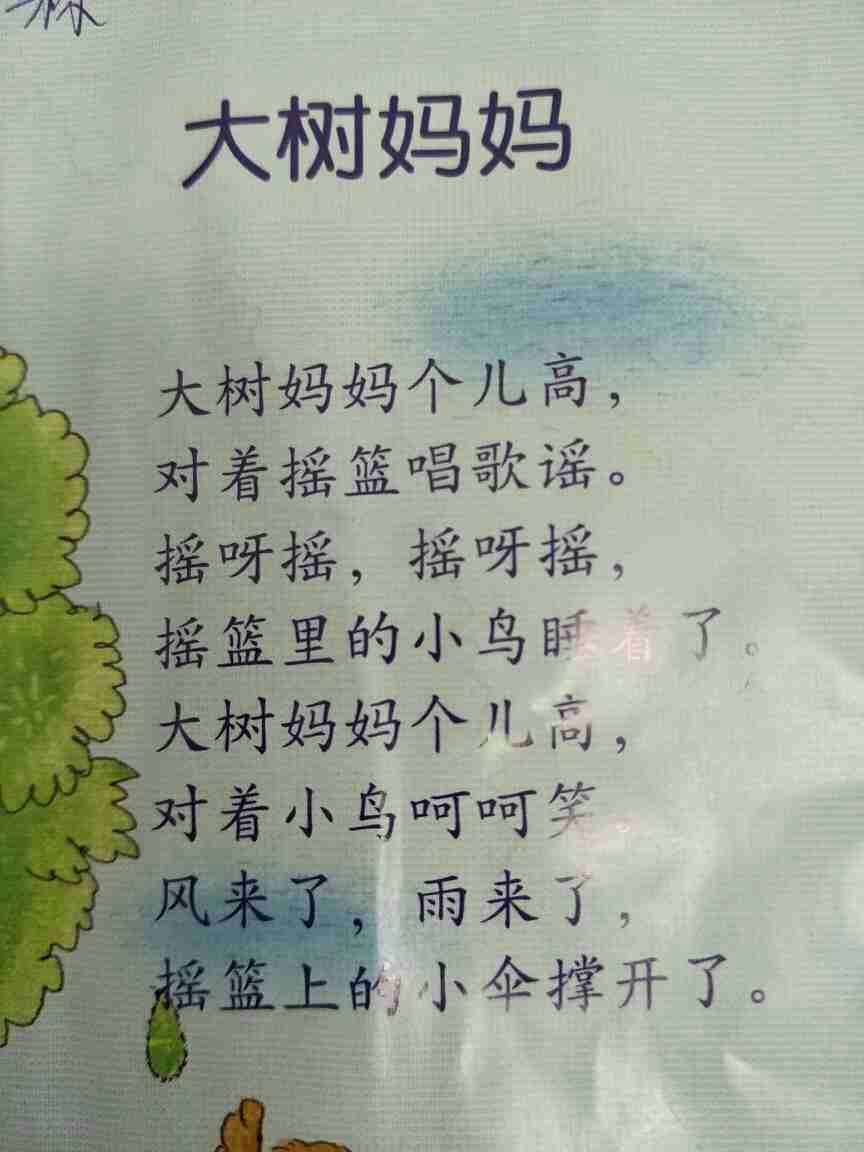 大树妈妈
大树妈妈个儿高，
对着摇篮唱歌谣。
摇呀摇，摇呀摇，
摇篮里的小鸟睡着了。
大树妈妈个儿高，
对着小鸟呵呵笑。
风来了，雨来了，
摇篮上的小伞撑开了。